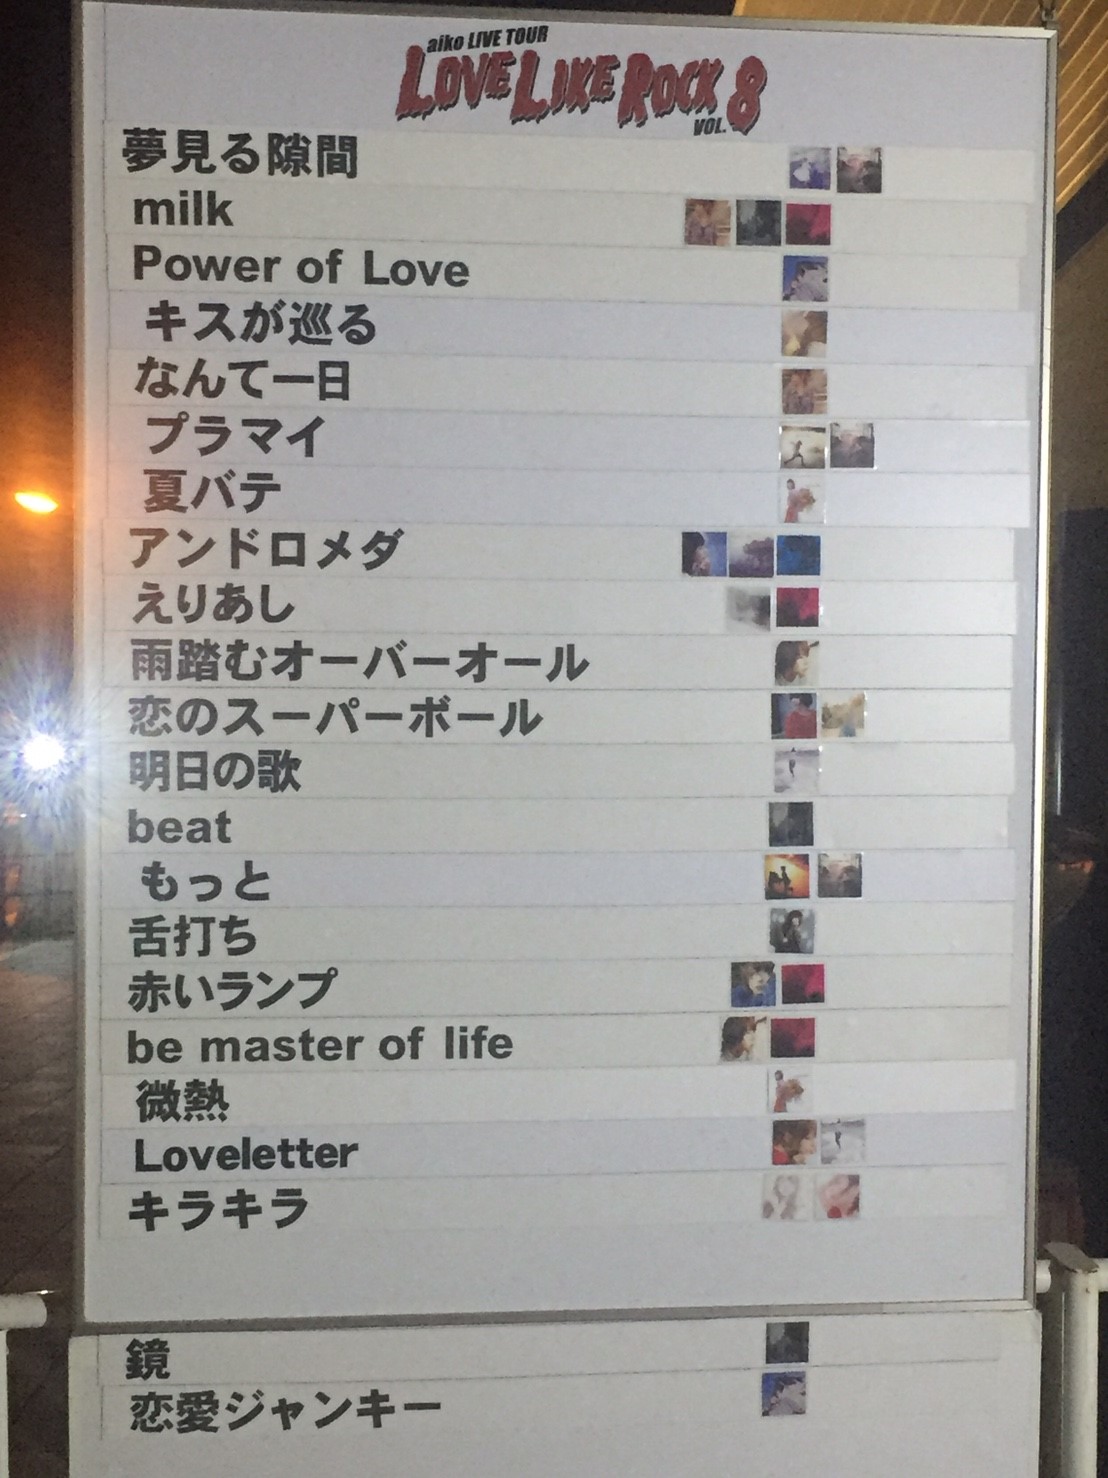 aiko LIVE TOUR
LOVE LIKE ROCK
VOL. 8
夢見る隙間
milk
Power of Love
キスが巡る
なんて一日
プラマイ
夏バテ
アンドロメダ
えりあし
雨踏むオーバーオール
恋のスーパーボール
明日の歌
beat
もっと
舌打ち
赤いランプ
be master of life
微熱
Loveletter
キラキラ
鏡
恋愛ジャンキー